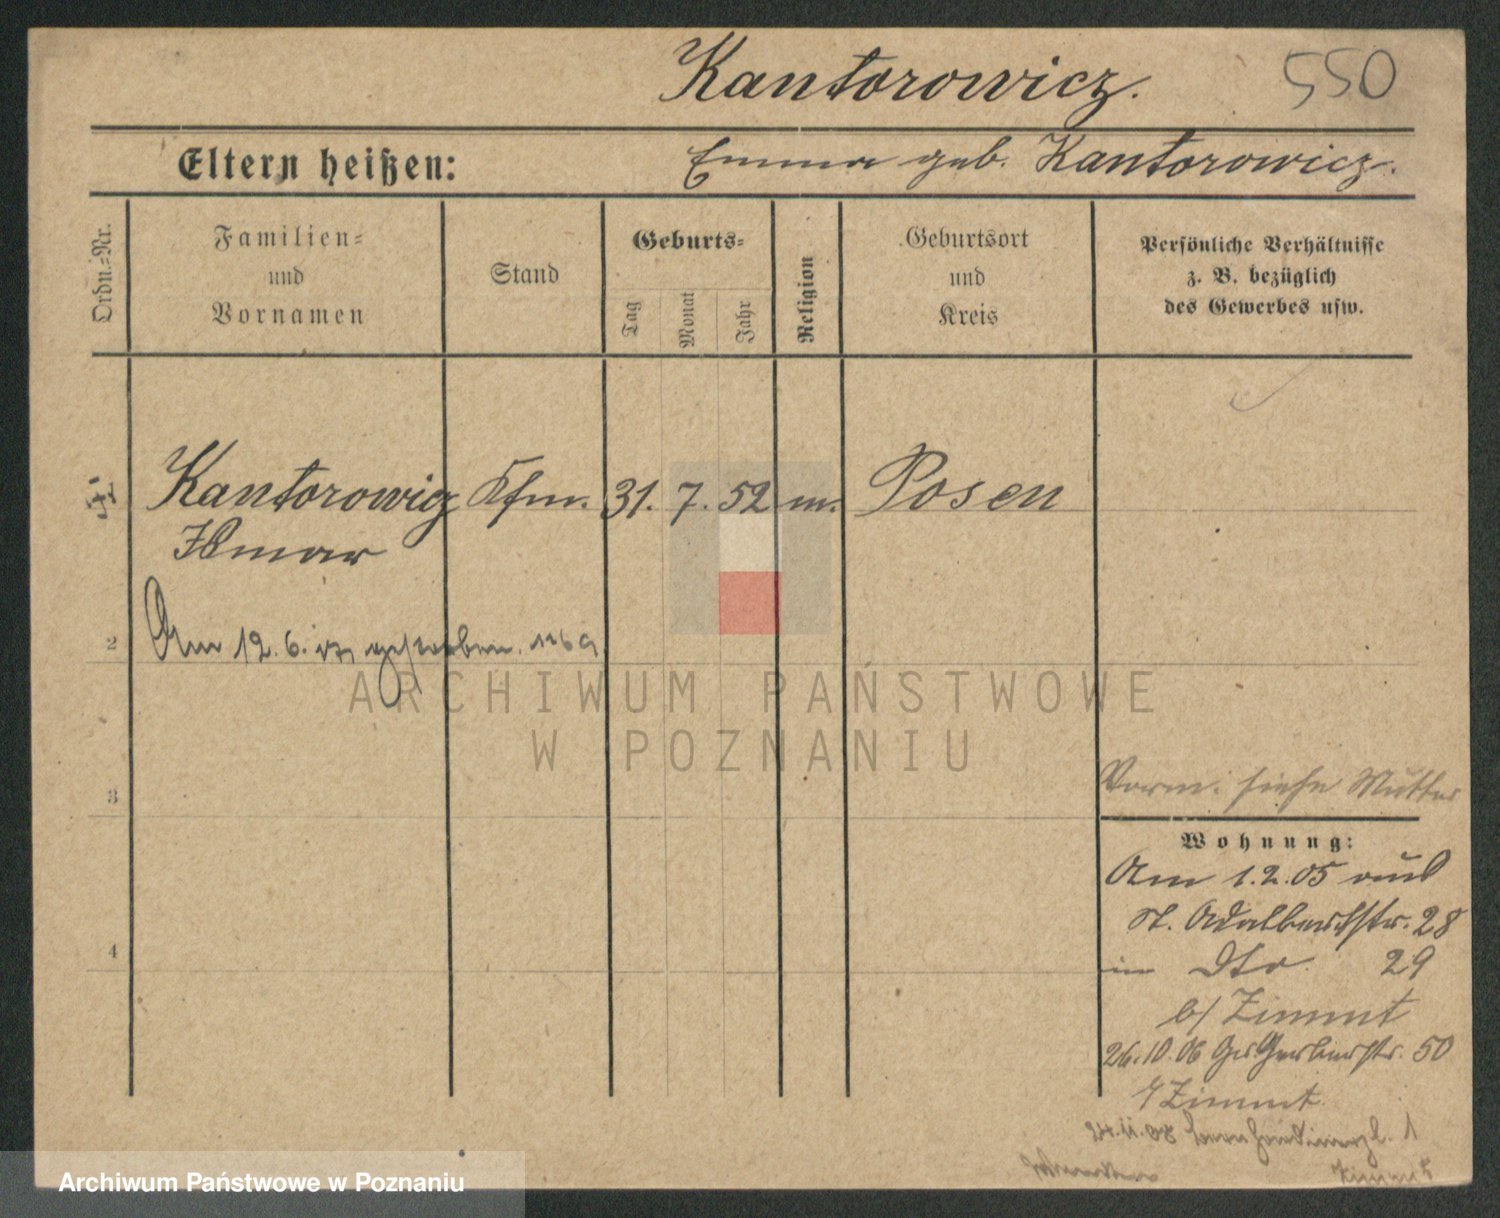 Kantorowicz. 550
Eltern heißen: Emma geb. Kantorowicz.
Ordn.-Nr.
Familien-
und
Vornamen
Stand
Geburts-
Tag
Monat
Jahr
Religion
Geburtsort
und
Kreis
Persönliche Verhältnisse
z. B. bezüglich
des Gewerbes usw.
Kantorowicz Kfm. 31. 7. 52 m. Posen
2 Am 12. 6. gestorben.
ARCHIWUM PAŃSTWOWE
W POZNANIU
3
Vorm. siehe Mutter
Wohnung:
Am 1. 2. 05 aus
St. Adalbertstr. 28
4
in Dto. 29
b/ Zimmt
26. 10. 06 Gr. Gerberstr. 50
Zimmt.
24. 11. 08 1
Zimmt
Archiwum Państwowe w Poznaniu